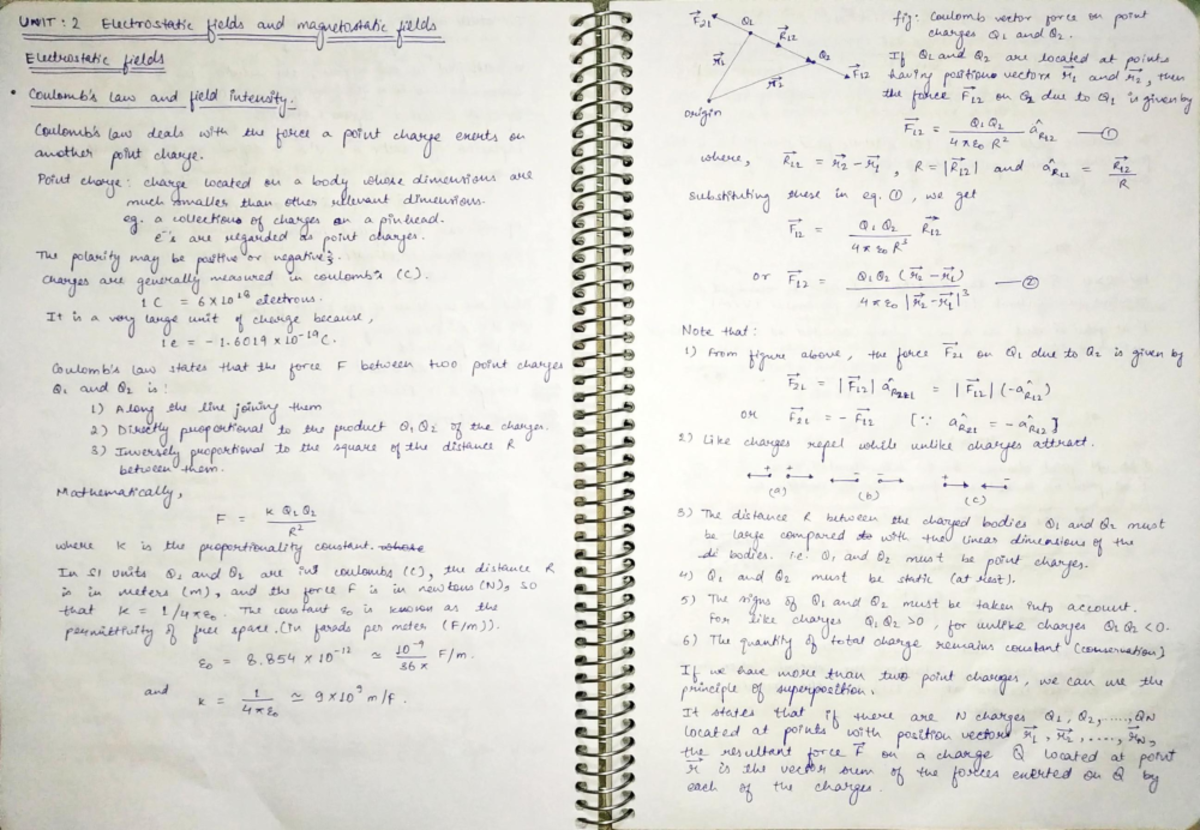 UNIT : 2 Electrostatic fields and magnetostatic fields
Electrostatic fields
• Coulomb's law and field intensity.
Coulomb's law deals with the force a point charge exerts on
another point charge.
Point charge : charge located on a body whose dimensions are
much smaller than other relevant dimensions.
eg. a collections of charges on a pinhead.
e⁻'s are regarded as point charges.
The polarity may be positive or negative;
charges are generally measured in coulomb's (C).
1 C = 6 x 10¹⁸ electrons.
It is a very large unit of charge because,
1 e = - 1.6019 x 10⁻¹⁹ C.
Coulomb's law states that the force F between two point charges
Q₁ and Q₂ is :
1) Along the line joining them
2) Directly proportional to the product Q₁ Q₂ of the charges.
3) Inversely proportional to the square of the distance R
between them.
Mathematically,
F = k Q₁ Q₂ / R²
where k is the proportionality constant.
In SI units Q₁ and Q₂ are in coulombs (C), the distance R
is in meters (m), and the force F is in newtons (N), so
that k = 1/4πε₀. The constant ε₀ is known as the
permittivity of free space. (in farads per meter (F/m)).
ε₀ = 8.854 x 10⁻¹² ≃ 10⁻⁹ / 36π F/m.
and
k = 1 / 4πε₀ ≃ 9 x 10⁹ m/F.
F⃗₂₁ Q₁ R⃗₁₂ Q₂ F⃗₁₂
r⃗₁ r⃗₂
origin
fig: Coulomb vector force on point
charges Q₁ and Q₂.
If Q₁ and Q₂ are located at points
having positions vectors r⃗₁ and r⃗₂, then
the force F⃗₁₂ on Q₂ due to Q₁ is given by
F⃗₁₂ = Q₁ Q₂ / 4πε₀ R² â_R₁₂ — ①
where, R⃗₁₂ = r⃗₂ - r⃗₁ , R = |R⃗₁₂| and â_R₁₂ = R⃗₁₂ / R
substituting these in eq. ①, we get
F⃗₁₂ = Q₁ Q₂ / 4πε₀ R³ R⃗₁₂
or F⃗₁₂ = Q₁ Q₂ (r⃗₂ - r⃗₁) / 4πε₀ |r⃗₂ - r⃗₁|³ — ②
Note that :
1) From figure above, the force F⃗₂₁ on Q₁ due to Q₂ is given by
F⃗₂₁ = |F⃗₁₂| â_R₂₁ = |F⃗₁₂| (-â_R₁₂)
or F⃗₂₁ = - F⃗₁₂ [∵ â_R₂₁ = - â_R₁₂]
2) Like charges repel while unlike charges attract.
+ + - - + -
(a) (b) (c)
3) The distance R between the charged bodies Q₁ and Q₂ must
be large compared with the linear dimensions of the
bodies. i.e. Q₁ and Q₂ must be point charges.
4) Q₁ and Q₂ must be static (at rest).
5) The signs of Q₁ and Q₂ must be taken into account.
For like charges Q₁Q₂ > 0, for unlike charges Q₁Q₂ < 0.
6) The quantity of total charge remains constant (conservation)
If we have more than two point charges, we can use the
principle of superposition.
It states that if there are N charges Q₁, Q₂, ....., QN
located at points with position vectors r⃗₁, r⃗₂, ....., r⃗N,
the resultant force F⃗ on a charge Q located at point
r⃗ is the vector sum of the forces exerted on Q by
each of the charges.